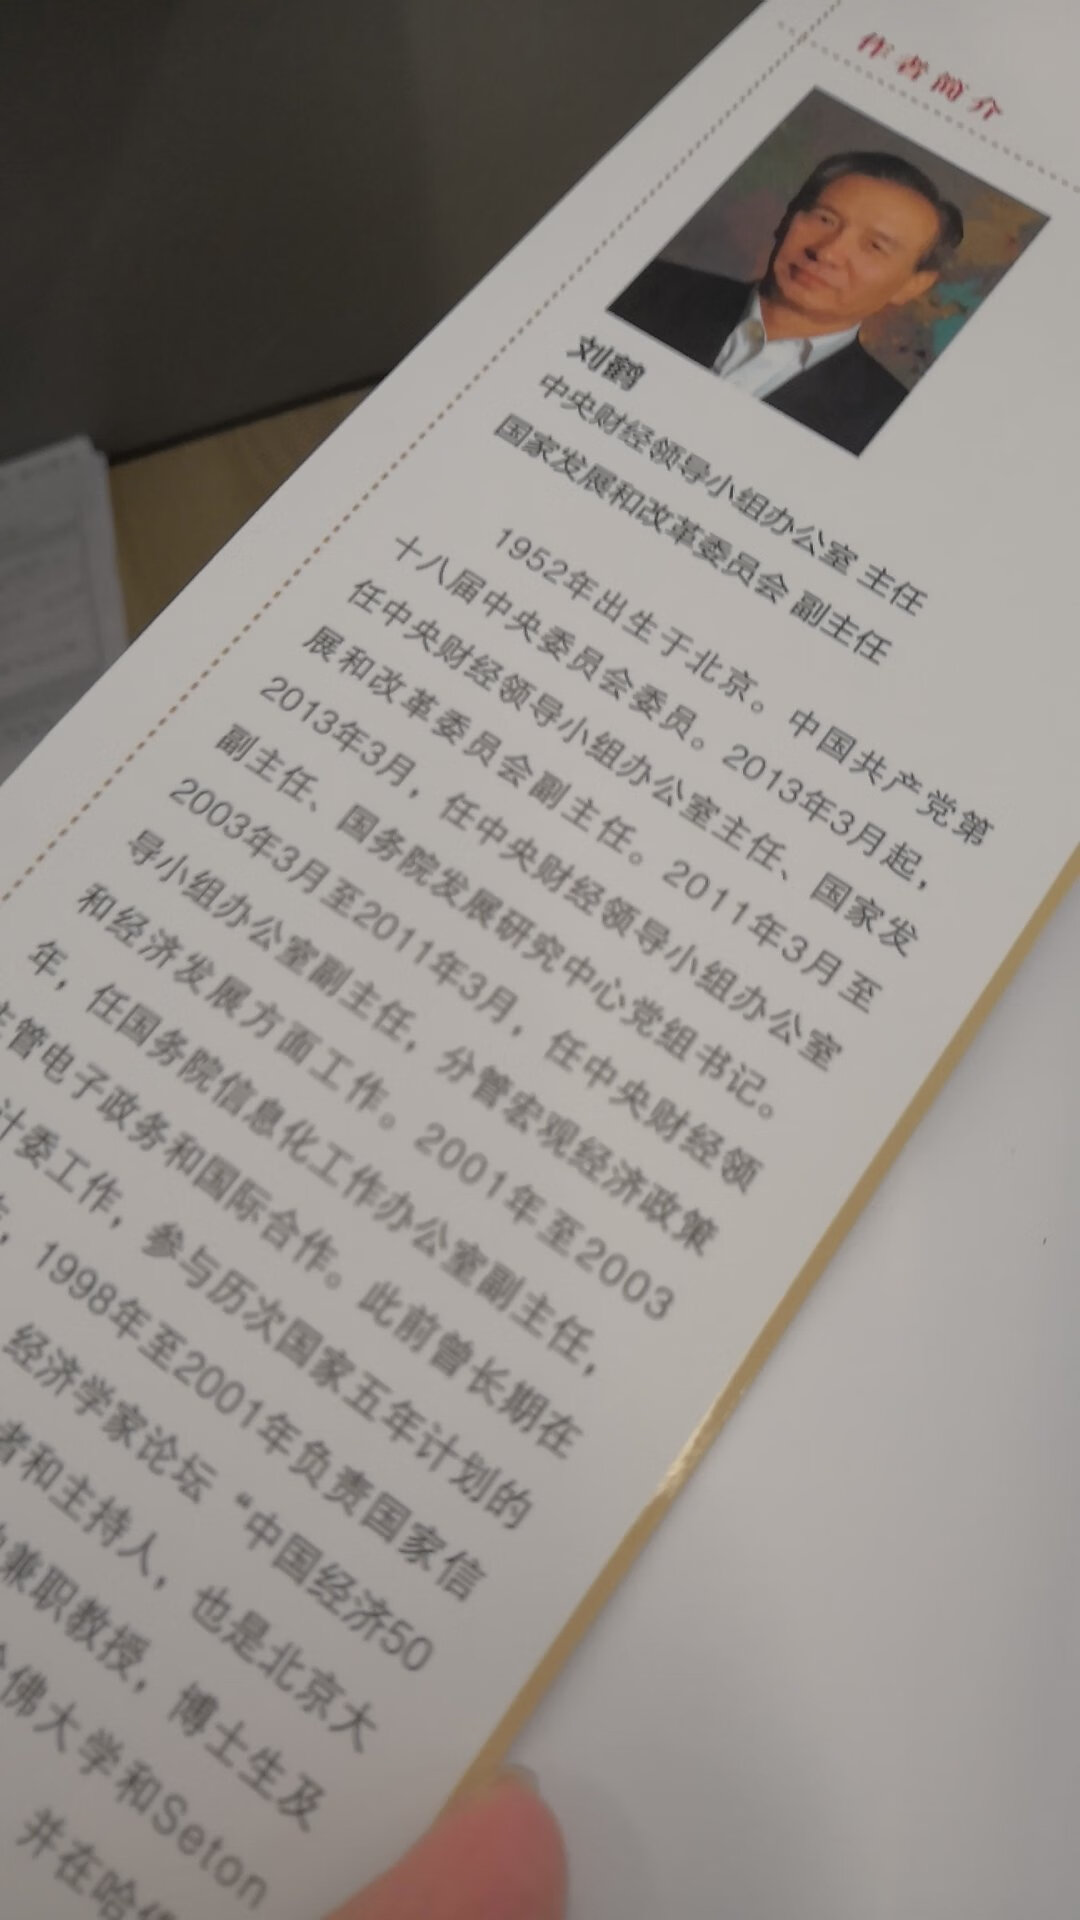 作者简介
刘鹤
中央财经领导小组办公室 主任
国家发展和改革委员会 副主任
1952年出生于北京。中国共产党第
十八届中央委员会委员。2013年3月起，
任中央财经领导小组办公室主任、国家发
展和改革委员会副主任。2011年3月至
2013年3月，任中央财经领导小组办公室
副主任、国务院发展研究中心党组书记。
2003年3月至2011年3月，任中央财经领
导小组办公室副主任，分管宏观经济政策
和经济发展方面工作。2001年至2003
年，任国务院信息化工作办公室副主任，
主管电子政务和国际合作。此前曾长期在
计委工作，参与历次国家五年计划的
，1998年至2001年负责国家信
经济学家论坛“中国经济50
者和主持人，也是北京大
兼职教授，博士生及
佛大学和Seton
并在哈佛